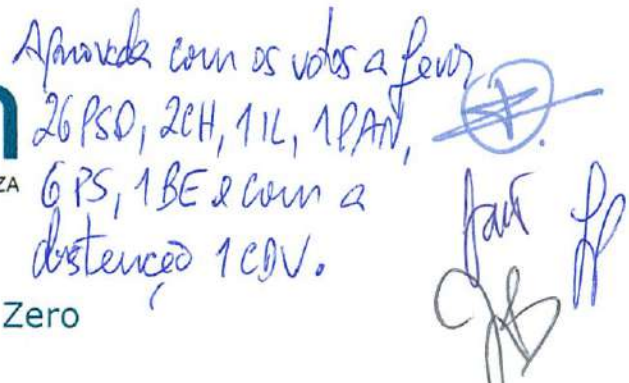 Aprovada com os votos a favor
26 PSD, 2CH, 1 IL, 1 PAN,
ZA
6 PS, 1 BE e com a
abstenção 1 CDU.
Zero